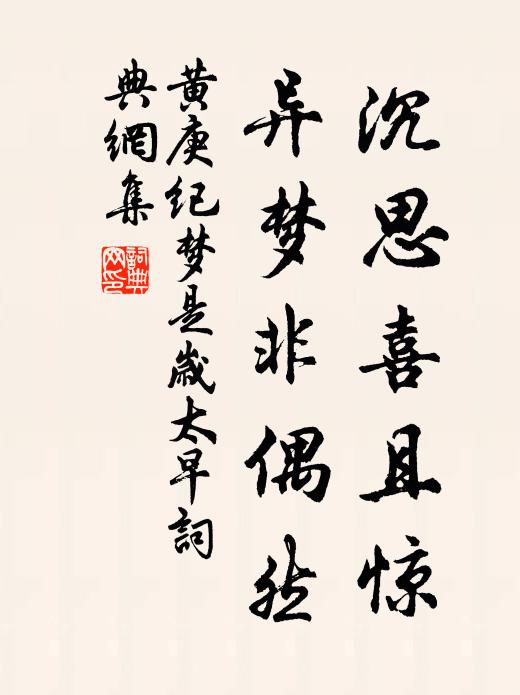 沉思喜且惊
异梦非偶然
黄庚纪梦是岁太早詞
典網集
詞典
网印